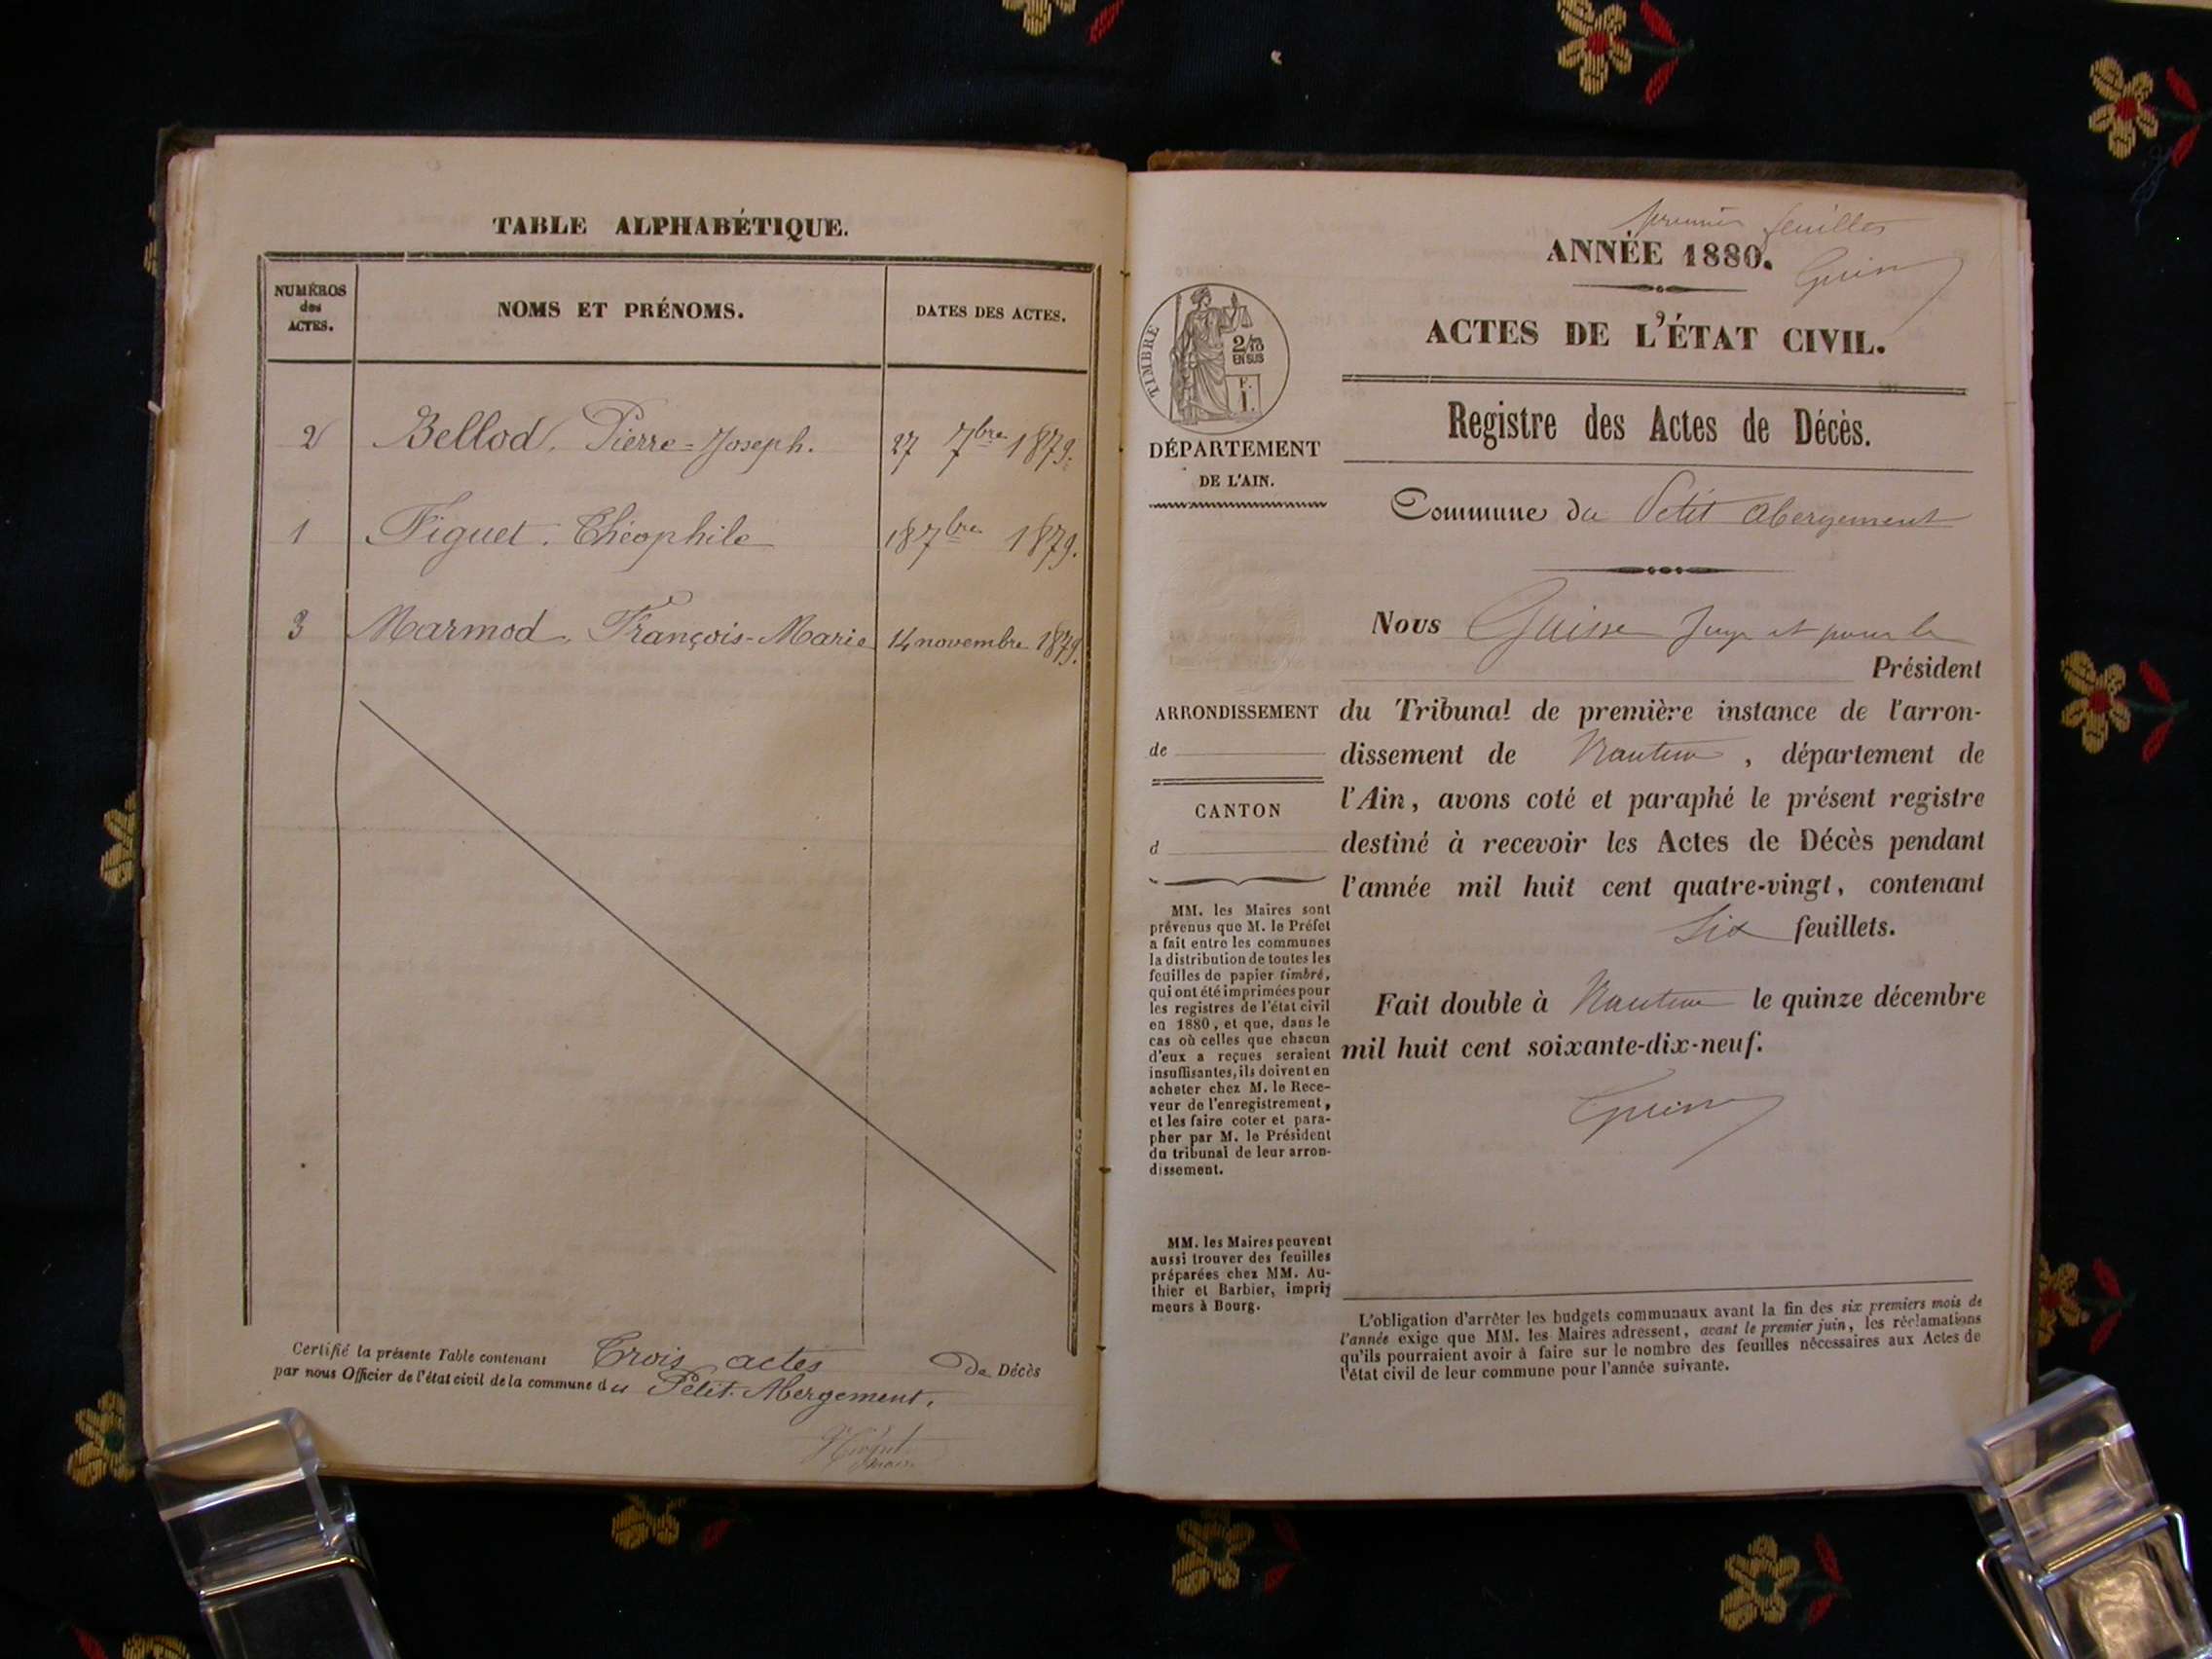 TABLE ALPHABÉTIQUE.
NUMÉROS des ACTES.
NOMS ET PRÉNOMS.
DATES DES ACTES.
2 Bellod, Pierre=Joseph. 27 7bre 1879.
1 Figuet. Théophile 18 7bre 1879.
3 Marmod, François-Marie 14 novembre 1879.
Certifié la présente Table contenant Trois actes De Décès
par nous Officier de l'état civil de la commune du Petit-Abergement.
premier feuillet
ANNÉE 1880.
ACTES DE L'ÉTAT CIVIL.
TIMBRE
2/10
EN SUS
F.
1.
DÉPARTEMENT
DE L'AIN.
Registre des Actes de Décès.
Commune du Petit Abergement
Nous Guisse Juge et pour le
Président
du Tribunal de première instance de l'arron-
dissement de Nantua, département de
l'Ain, avons coté et paraphé le présent registre
destiné à recevoir les Actes de Décès pendant
l'année mil huit cent quatre-vingt, contenant
Six feuillets.
Fait double à Nantua le quinze décembre
mil huit cent soixante-dix-neuf.
ARRONDISSEMENT
de
CANTON
d
MM. les Maires sont
prévenus que M. le Préfet
a fait entre les communes
la distribution de toutes les
feuilles de papier timbré,
qui ont été imprimées pour
les registres de l'état civil
en 1880, et que, dans le
cas où celles que chacun
d'eux a reçues seraient
insuffisantes, ils doivent en
acheter chez M. le Rece-
veur de l'enregistrement,
et les faire coter et para-
pher par M. le Président
du tribunal de leur arron-
dissement.
MM. les Maires peuvent
aussi trouver des feuilles
préparées chez MM. Au-
thier et Barbier, impri
meurs à Bourg.
L'obligation d'arrêter les budgets communaux avant la fin des six premiers mois de
l'année exige que MM. les Maires adressent, avant le premier juin, les réclamations
qu'ils pourraient avoir à faire sur le nombre des feuilles nécessaires aux Actes de
l'état civil de leur commune pour l'année suivante.